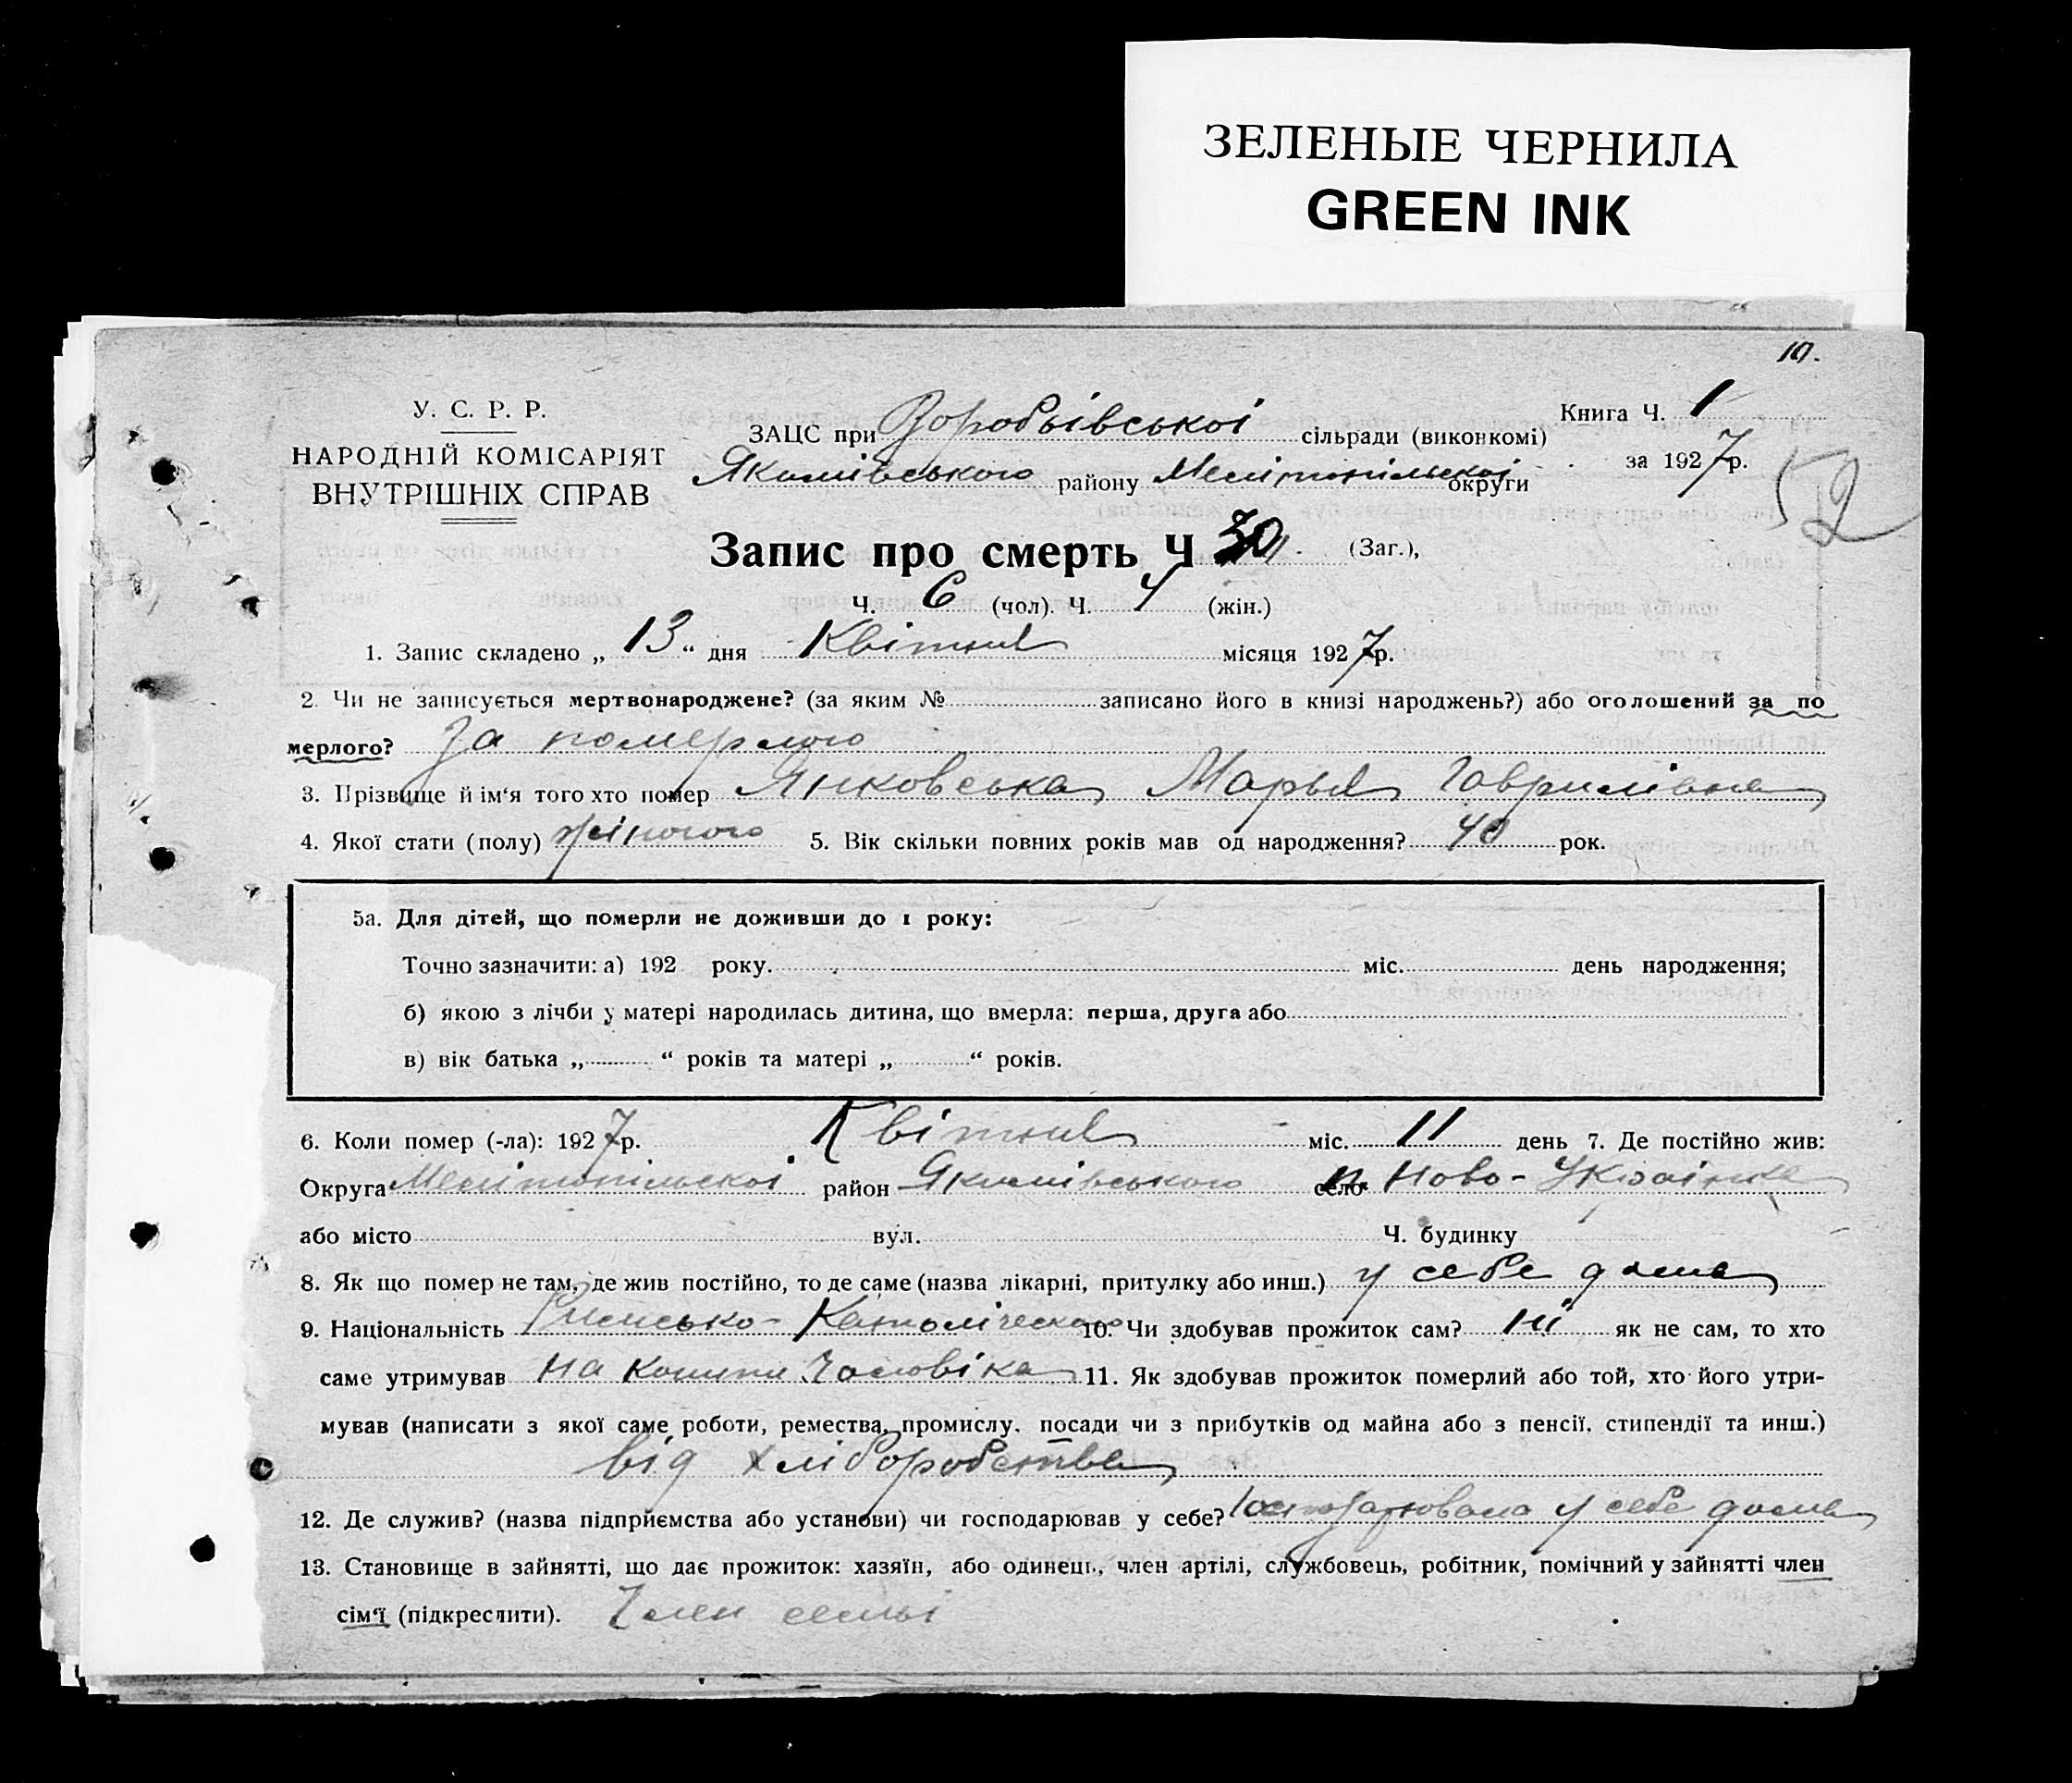 ЗЕЛЕНЫЕ ЧЕРНИЛА
GREEN INK
10.
У. С. Р. Р.
НАРОДНІЙ КОМІСАРІЯТ
ВНУТРІШНІХ СПРАВ
Книга Ч. 1
за 1927р.
52
ЗАЦС при Воробьівськоі сільради (виконкомі)
Якимівського району Мелітопільскоі округи
Запис про смерть Ч 10. (Заг.),
Ч. 6 (чол). Ч. 4 (жін.)
1. Запис складено „ 13 “ дня Квітня місяця 1927р.
2. Чи не записується мертвонароджене? (за яким № записано його в книзі народжень?) або оголошений за по
мерлого? За померлого
3. Прізвище й ім‘я того хто помер Янковська Марья Гаврилівна
4. Якої стати (полу) жіночого 5. Вік скільки повних років мав од народження? 40 рок.
5а. Для дітей, що померли не доживши до 1 року:
Точно зазначити: а) 192 року. міс. день народження;
б) якою з лічби у матері народилась дитина, що вмерла: перша, друга або
в) вік батька „ “ років та матері „ “ років.
6. Коли помер (-ла): 1927р. Квітня міс. 11 день 7. Де постійно жив:
Округа Мелітопільскоі район Якимівського село Ново-Украінка
або місто вул. Ч. будинку
8. Як що помер не там, де жив постійно, то де саме (назва лікарні, притулку або инш.) у себе дома
9. Національність Римсько-Католіческого 10. Чи здобував прожиток сам? ні як не сам, то хто
саме утримував на кошти чоловіка 11. Як здобував прожиток померлий або той, хто його утри-
мував (написати з якої саме роботи, ремества, промислу, посади чи з прибутків од майна або з пенсії, стипендії та инш.)
від хліборобства
12. Де служив? (назва підприємства або установи) чи господарював у себе? Господарювала у себе дома
13. Становище в зайнятті, що дає прожиток: хазяїн, або одинець, член артілі, службовець, робітник, помічний у зайнятті член
сім‘ї (підкреслити). Член семьі